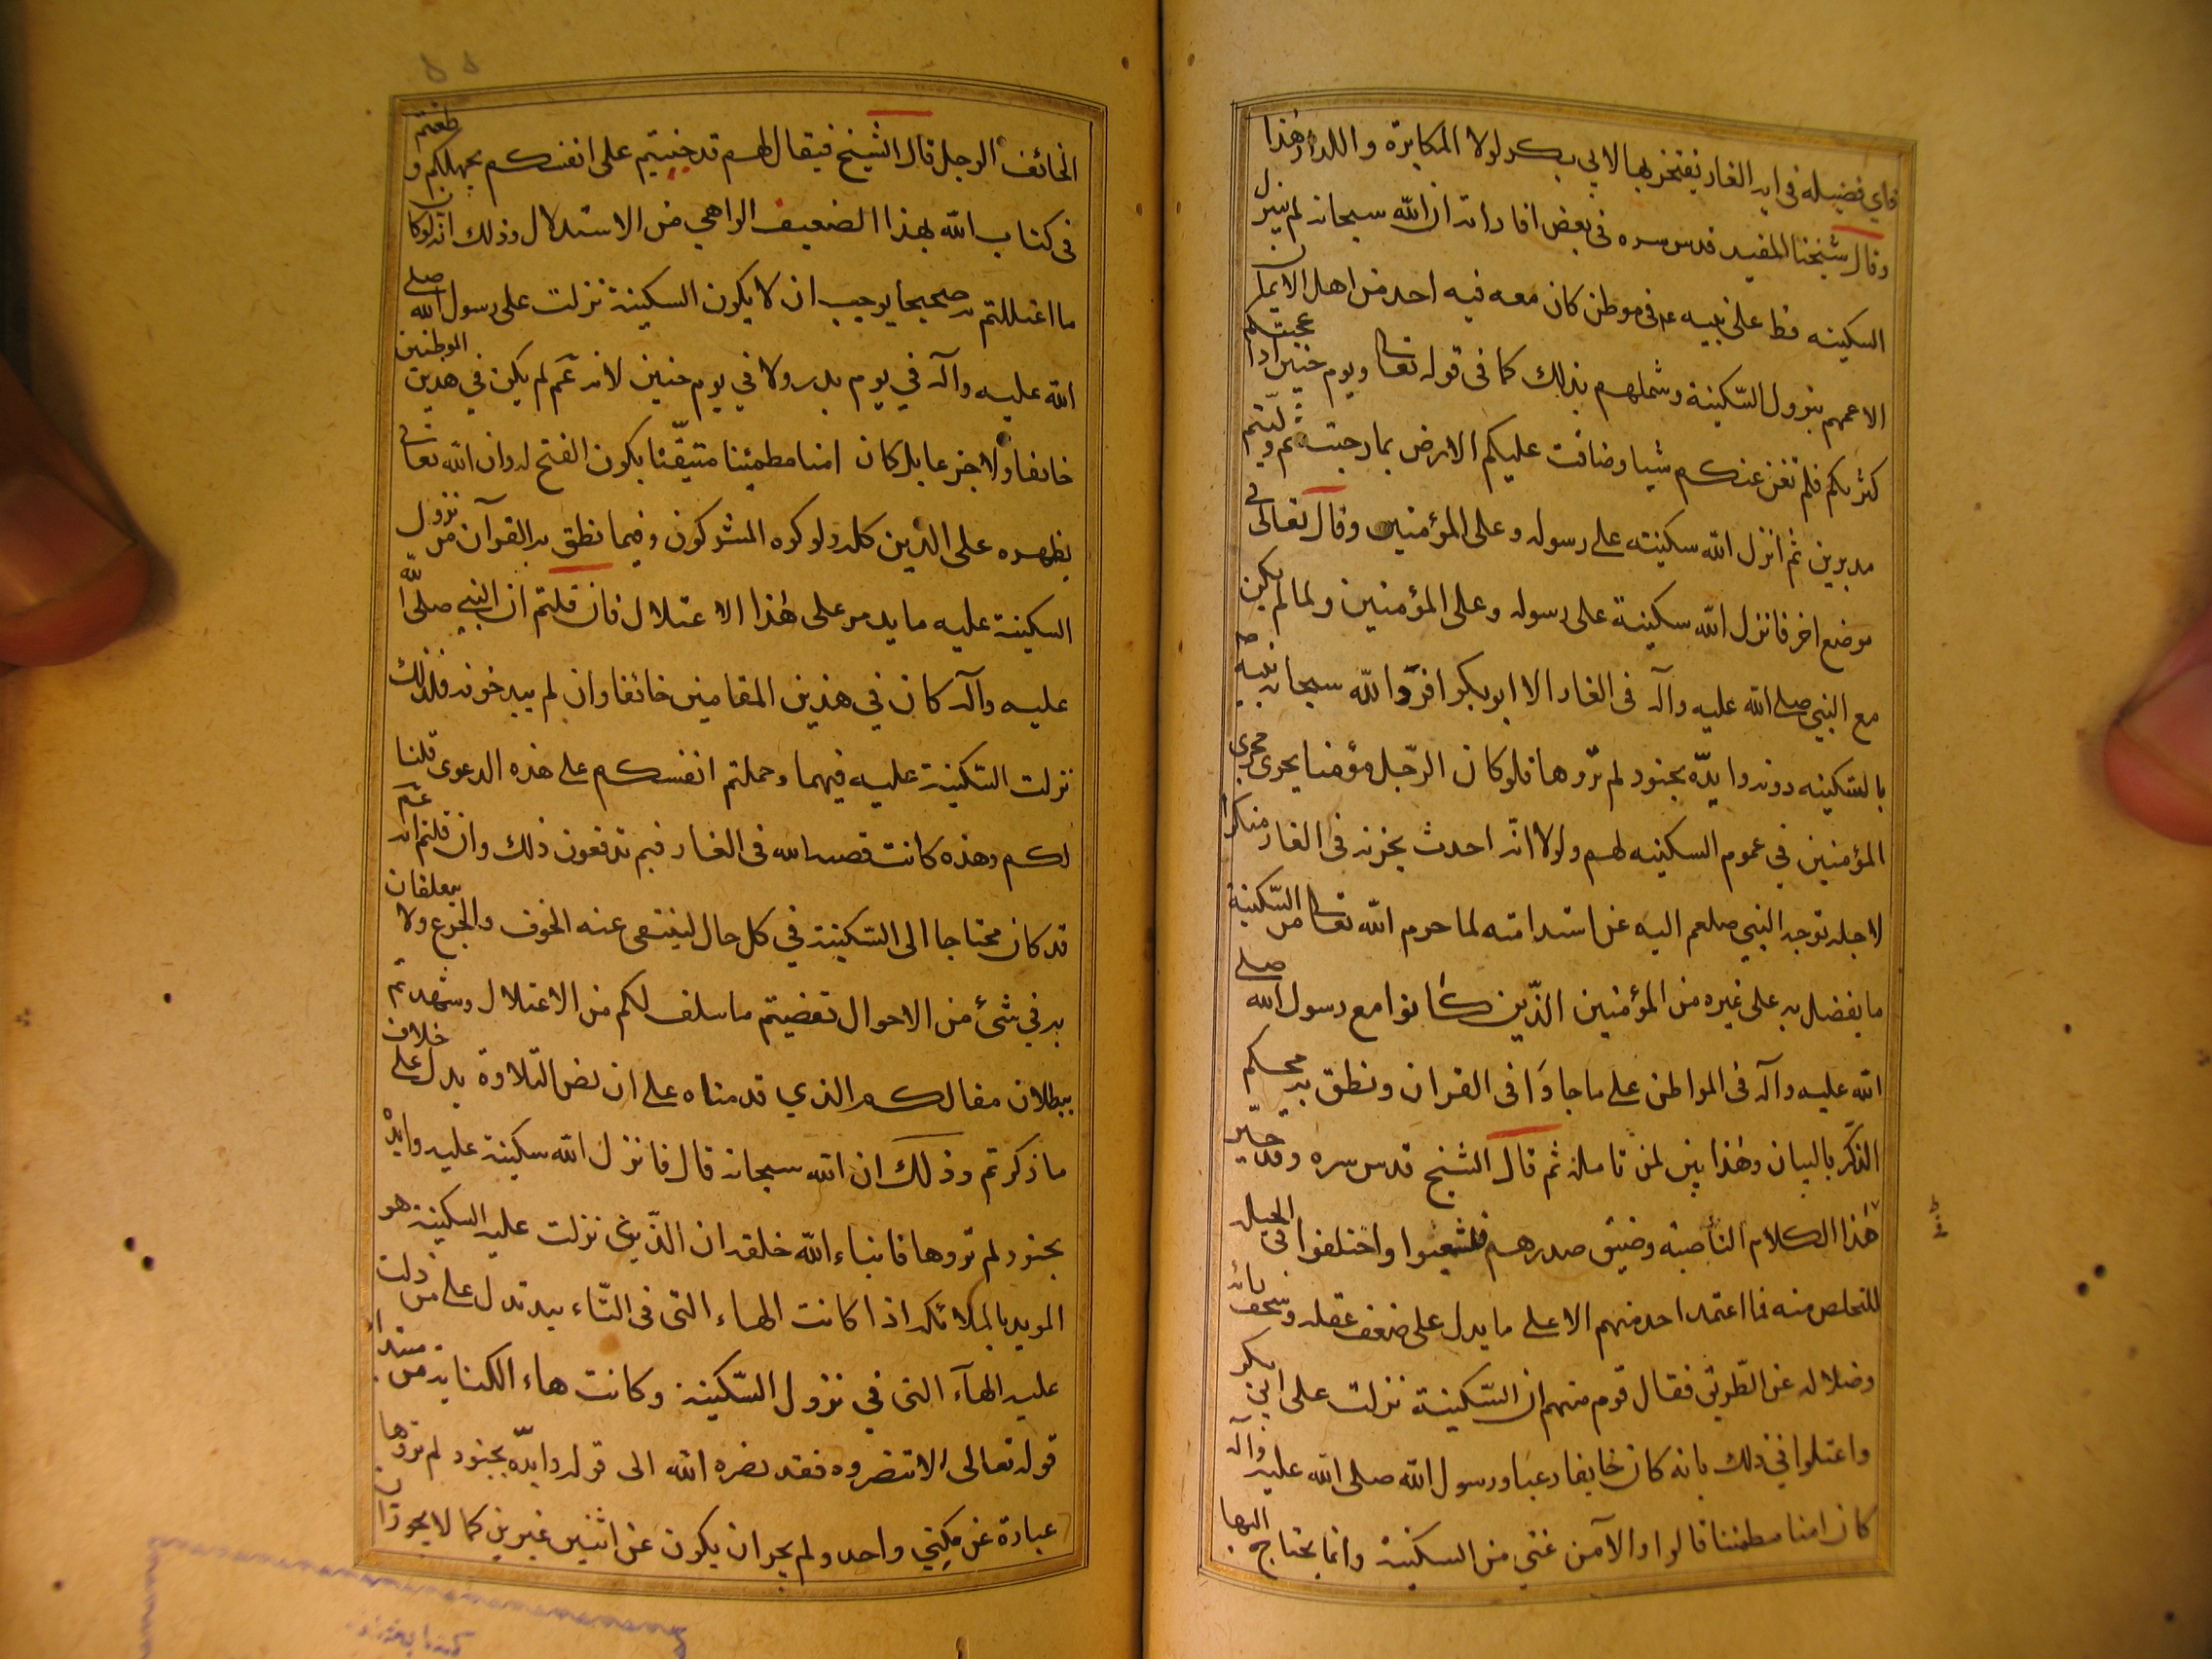 فاي فضيله في ايه الغار يفتخر بها لابي بكر لولا المكابرة واللداد وهذا
وقال شيخنا المفيد قدس سره في بعض افاداته ان الله سبحانه لم ينزل
السكينه قط على نبيه ع في موطن كان معه فيه احد من اهل الايمان
الا عمهم بنزول السّكينة وشملهم بذلك كما في قوله تعا ويوم حنين اذا عجبتكم
كثرتكم فلم تغن عنكم شيا وضاقت عليكم الارض بما رحبت ثم وليتم
مدبرين ثم انزل الله سكينته على رسوله وعلى المؤمنين وقال تعالى في
موضع اخر فانزل الله سكينة على رسوله وعلى المؤمنين ولما لم يكن
مع النبي صلى الله عليه وآله في الغار الا ابو بكر افرد الله سبحانه نبيه
بالسّكينه دونه وايدّه بجنود لم تروها فلو كان الرّجل مؤمنا يجرى مجرى
المؤمنين في عموم السكينه لهم ولولا انّه احدث بحزنه في الغار منكرا
لاجله توجه النبي صلعم اليه عن استدامته لما حرم الله تعا من السّكينة
ما يفضل به على غيره من المؤمنين الذّين كانوا مع رسول الله صلى
الله عليه وآله في المواطن على ما جاوَا في القران ونطق به محكم
الذّكر بالبيان وهذا بين لمن تامله ثم قال الشيخ قدس سره وقد حيّر
هذا الكلام الناصبة وضيق صدرهم فتشعبوا واختلفوا في الحيله
للتخلص منه فما اعتمد احد منهم الا على ما يدل على ضعف عقله وسخف رائه
وضلاله عن الطّريق فقال قوم منهم ان السّكينة نزلت على ابي بكر
واعتلوا في ذلك بانه كان خايفا رعبا ورسول الله صلى الله عليه وآله
كان امنا مطمئنا قالوا والآمن غني من السكينة وانما يحتاج اليها
الخائف الوجل قال الشيخ فيقال لهم قد جنيتم على انفسكم بجهلكم و طغتم
في كتاب الله بهذا الضعيف الواهي من الاستدلال وذلك انه لو كان
ما اعتللتم به صحيحا يوجب ان لا يكون السكينة نزلت على رسول الله صلى
الله عليه وآله في يوم بدر ولا في يوم حنين لانه عم لم يكن في هدين الموطنين
خائفا ولا جزعا بل كان امنا مطمئنا متيقّنا بكون الفتح له وان الله تعا
يظهره على الدين كله ولو كره المشركون وفيما نطق به القرآن من نزول
السكينة عليه ما يدمر على هذا الاعتلال فان قلتم ان النبي صلى الله
عليه وآله كان في هذين المقامين خائفا وان لم يبد خوفه فلذلك
نزلت السّكينة عليه فيهما وحملتم انفسكم على هذه الدعوى قلنا
لكم وهذه كانت قصته في الغار فبم تدفعون ذلك وان قلتم انه عم
قد كان محتاجا الى السّكينة في كل حال لينتفى عنه الخوف والجزع ولا يتعلقان
به في شئ من الاحوال نقضيتم ما سلف لكم من الاعتلال وشهدتم
ببطلان مقالكم الذي قدمناه على ان نص التلاوة يدل على خلاف
ما ذكرتم وذلك ان الله سبحانه قال فانزل الله سكينة عليه وايده
بجنود لم تروها فانباء الله خلقه ان الذّي نزلت عليه السكينة هو
المويد بالملائكه اذا كانت الهاء التي في التّاء ييد تدل على من دلت
عليه الهآء التى في نزول السّكينة وكانت هاء الكناية من مبتدا
قوله تعالى الا تنصروه فقد نصره الله الى قوله وايدّه بجنود لم تروها
عبارة عن مكنّي واحد ولم يجز ان يكون عن اثنين غيرين كما لا يجوز ان